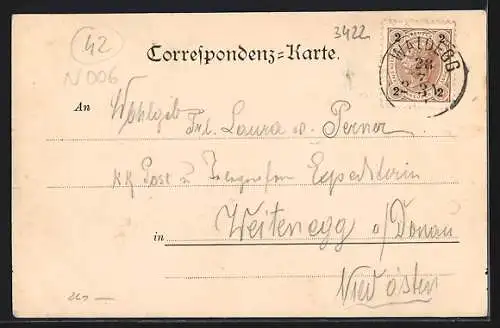 42
N006
3422
Correspondenz=Karte.
2 2
2 2
WALDEGG
28
7
An Wohlgeb
Frl. Laura v. Perner
KK Post u Telegrafen Expeditorin
in Weitenegg a/Donau
Nied östen